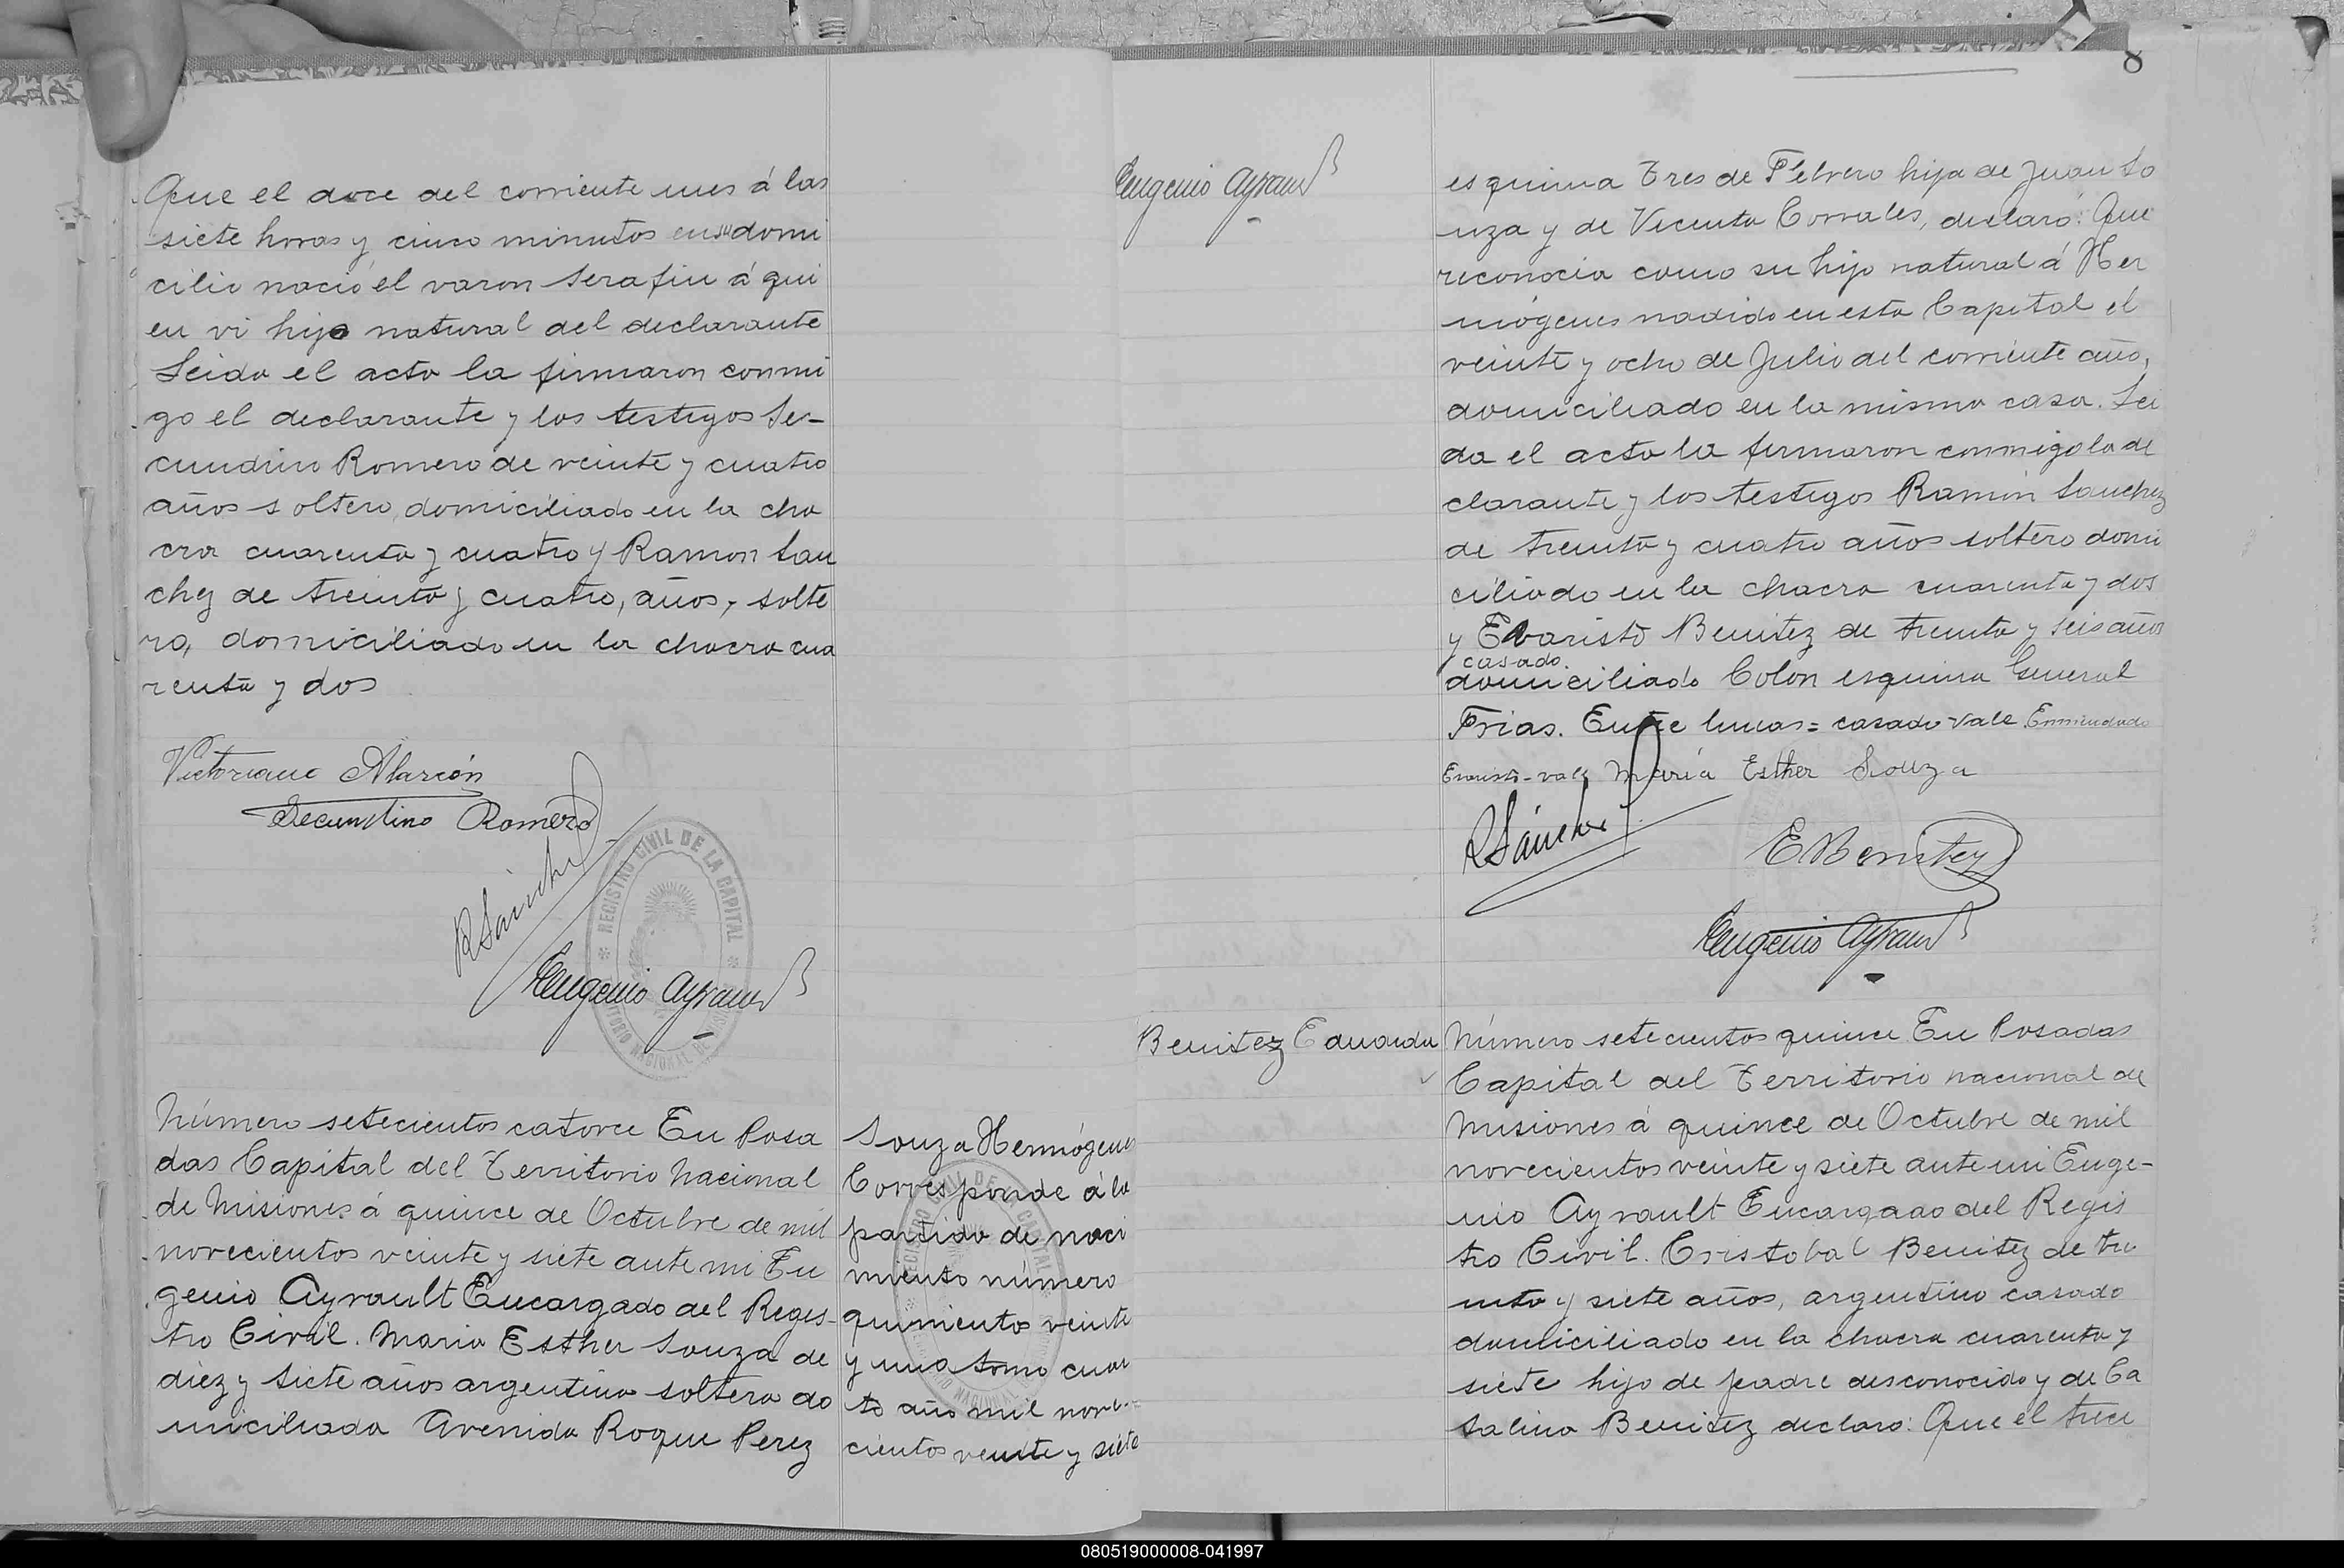 Que el doce del corriente mes á las
siete horas y cinco minutos en su domi
cilio nació el varon Serafin á qui
en vi hijo natural del declarante
Leida el acta la firmaron conmi
go el declarante y los testigos Se-
cundino Romero de veinte y cuatro
años soltero, domiciliado en la cha
cra cuarenta y cuatro y Ramon San
chez de treinta y cuatro, años, solte
ro, domiciliado en la chacra cua
renta y dos
Victoriano Alarcón
Secundino Romero
RSánchez
Eugenio Ayrault
REGISTRO CIVIL DE LA CAPITAL
Número setecientos catorce En Posa
das Capital del Territorio Nacional
de Misiones á quince de Octubre de mil
novecientos veinte y siete ante mi Eu
genio Ayrault Encargado del Regis-
tro Civil. Maria Esther Souza de
diez y siete años argentina soltera do
miciliada Avenida Roque Perez
Souza Hermógenes
Corresponde á la
partida de naci
miento número
quinientos veinte
y uno tomo cuar
to año mil nove-
cientos veinte y siete
Eugenio Ayrault
8
esquina Tres de Febrero hija de Juan So
uza y de Vicenta Corrales, declaró: Que
reconocia como su hijo natural á Her
mógenes nacido en esta Capital el
veinte y ocho de Julio del corriente año,
domiciliado en la misma casa. Lei
da el acta la firmaron conmigo la de
clarante y los testigos Ramón Sanchez
de treinta y cuatro años soltero domi
ciliado en la chacra cuarenta y dos
y Evaristo Benitez de treinta y seis años
casado.
domiciliado Colon esquina General
Frias. Entre lineas = casado vale Enmendado
Evaristo - vale Maria Esther Souza
RSánchez
EBenitez
Eugenio Ayrault
Benitez Eduarda
Número setecientos quince En Posadas
Capital del Territorio nacional de
Misiones á quince de Octubre de mil
novecientos veinte y siete ante mi Euge-
nio Ayrault Encargado del Regis
tro Civil. Cristobal Benitez de tre
inta y siete años, argentino casado
domiciliado en la chacra cuarenta y
siete hijo de padre desconocido y de Ca
talina Benitez declaró: Que el trece
080519000008-041997